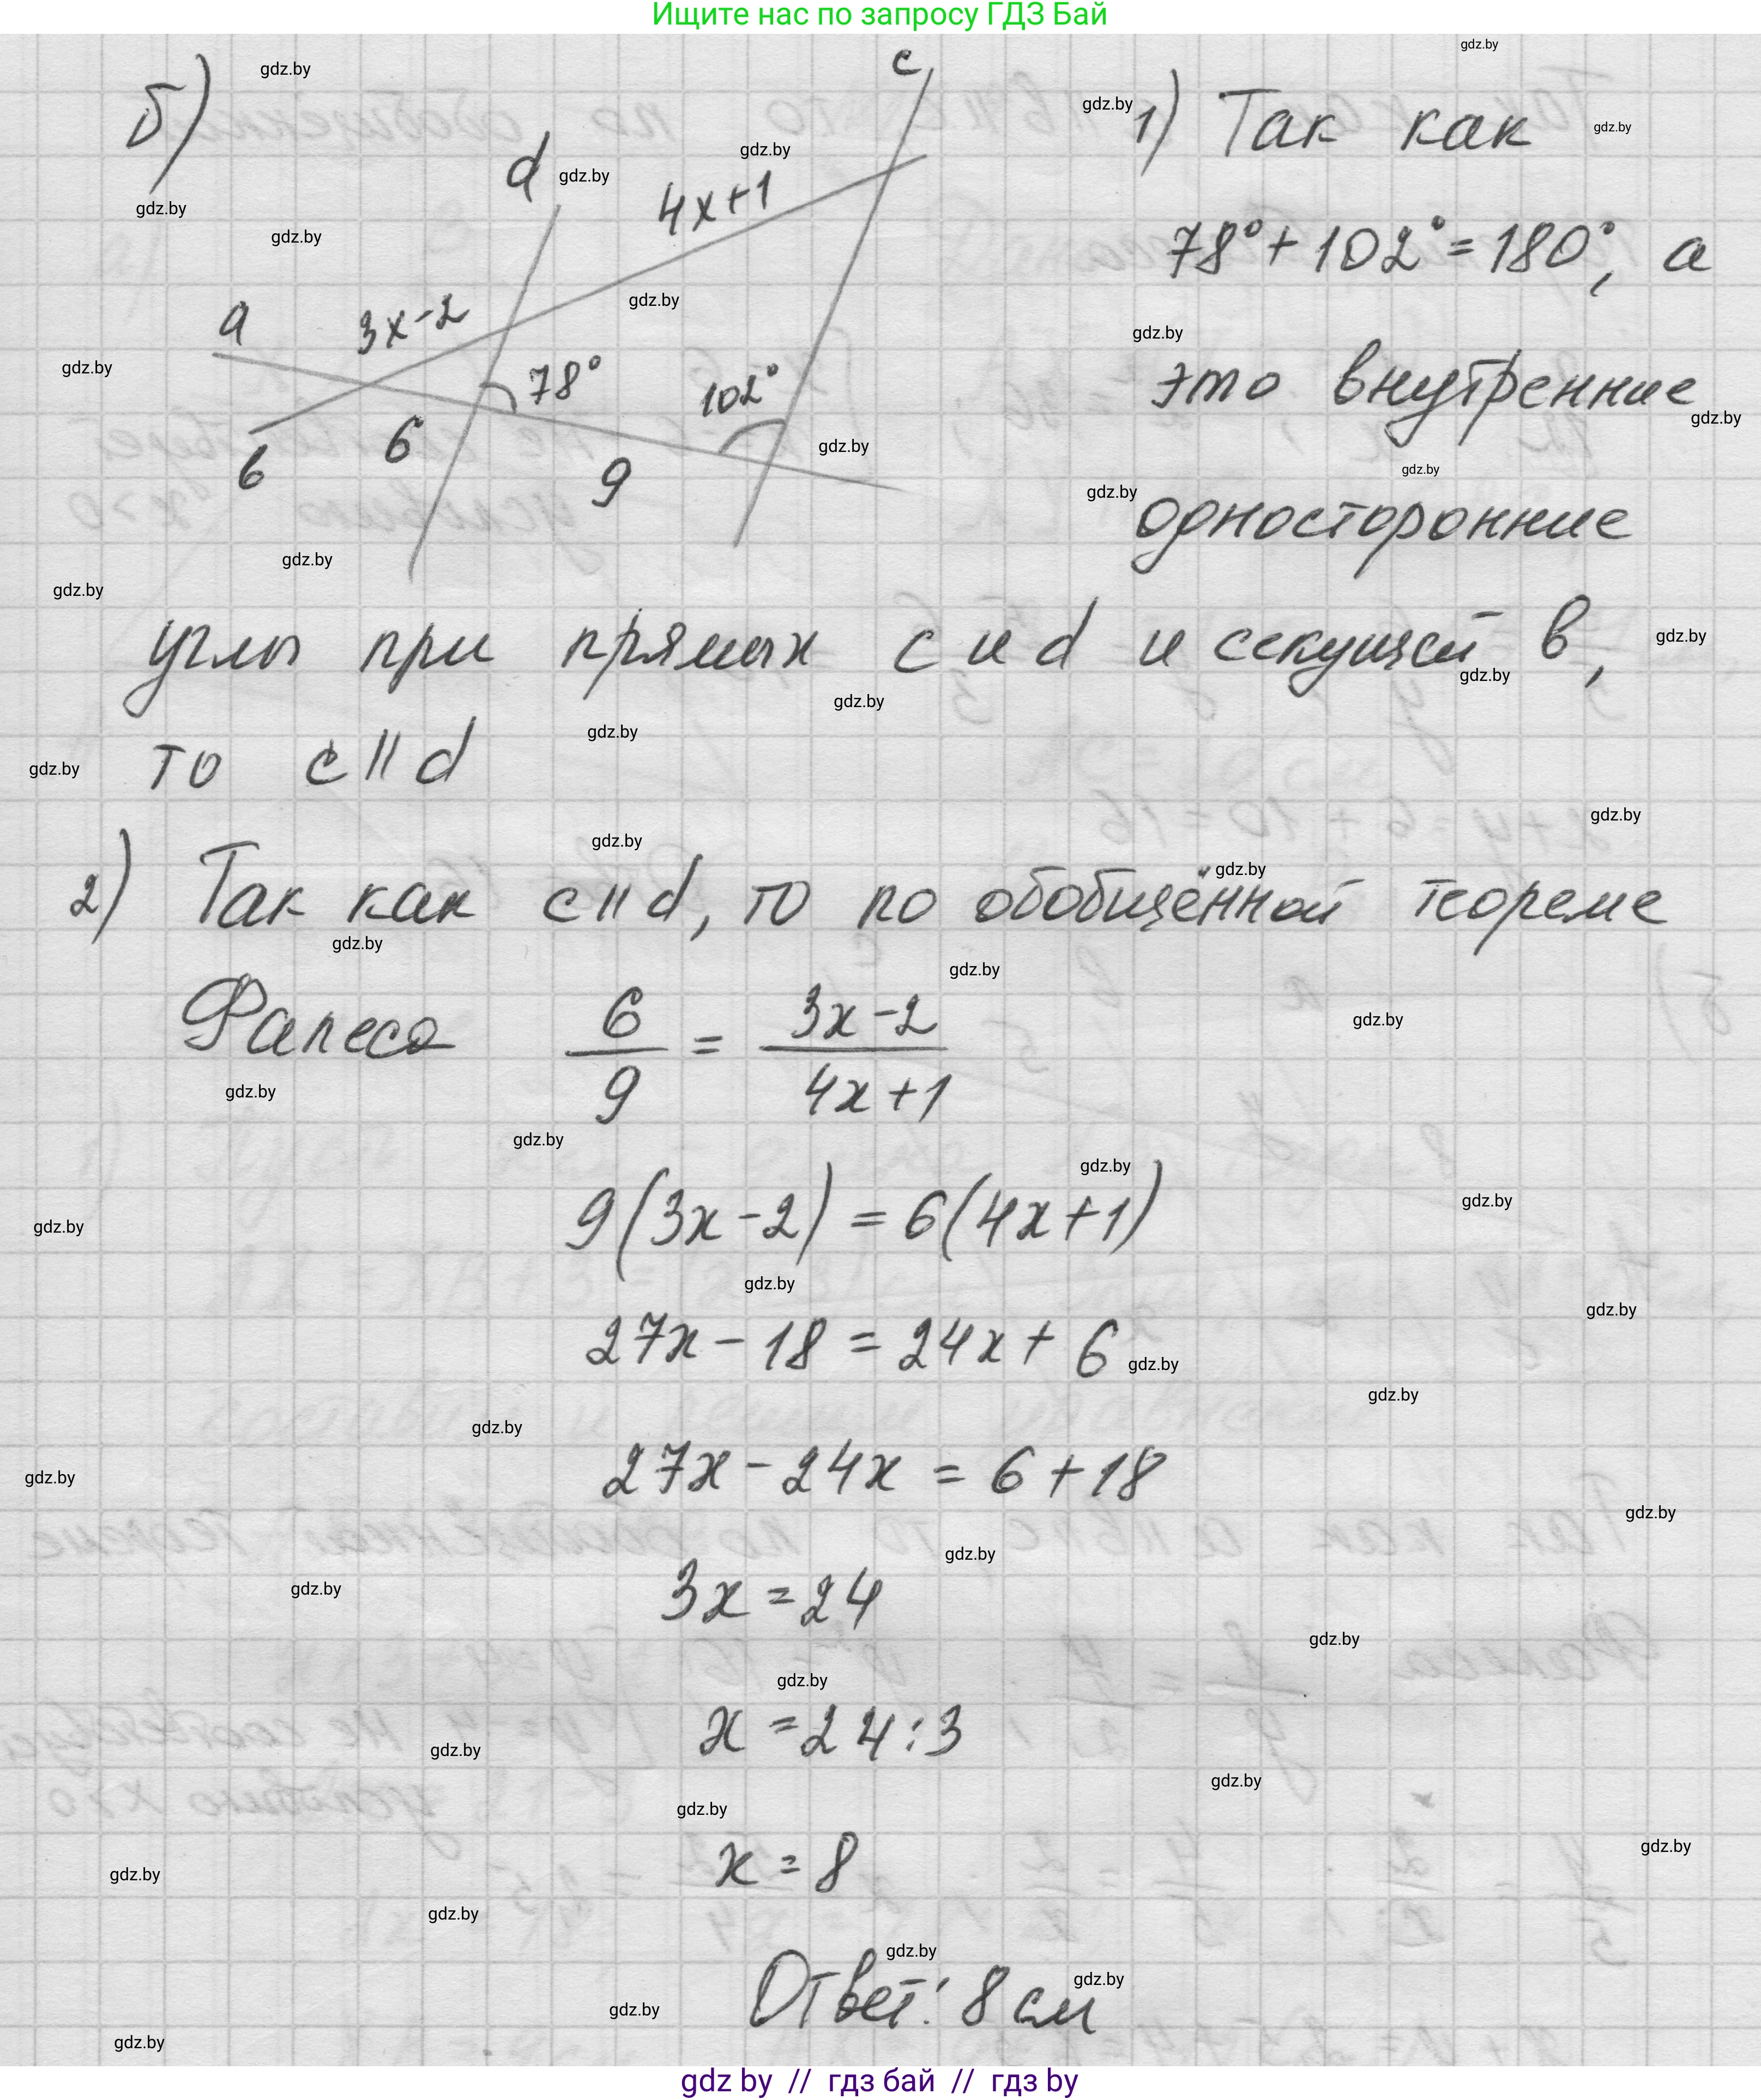 Ищите нас по запросу ГДЗ Бай
б)
c
d
4x+1
a
3x-2
78°
102°
в
6
9
1) Так как
78°+102°=180°, а
это внутренние
односторонние
углы при прямых c и d и секущей в,
то c || d
2) Так как c || d, то по обобщённой теореме
Фалеса 6/9 = (3x-2)/(4x+1)
9(3x-2)=6(4x+1)
27x-18=24x+6
27x-24x=6+18
3x=24
x=24:3
x=8
Ответ: 8 см
gdz by // гдз бай // гдз by